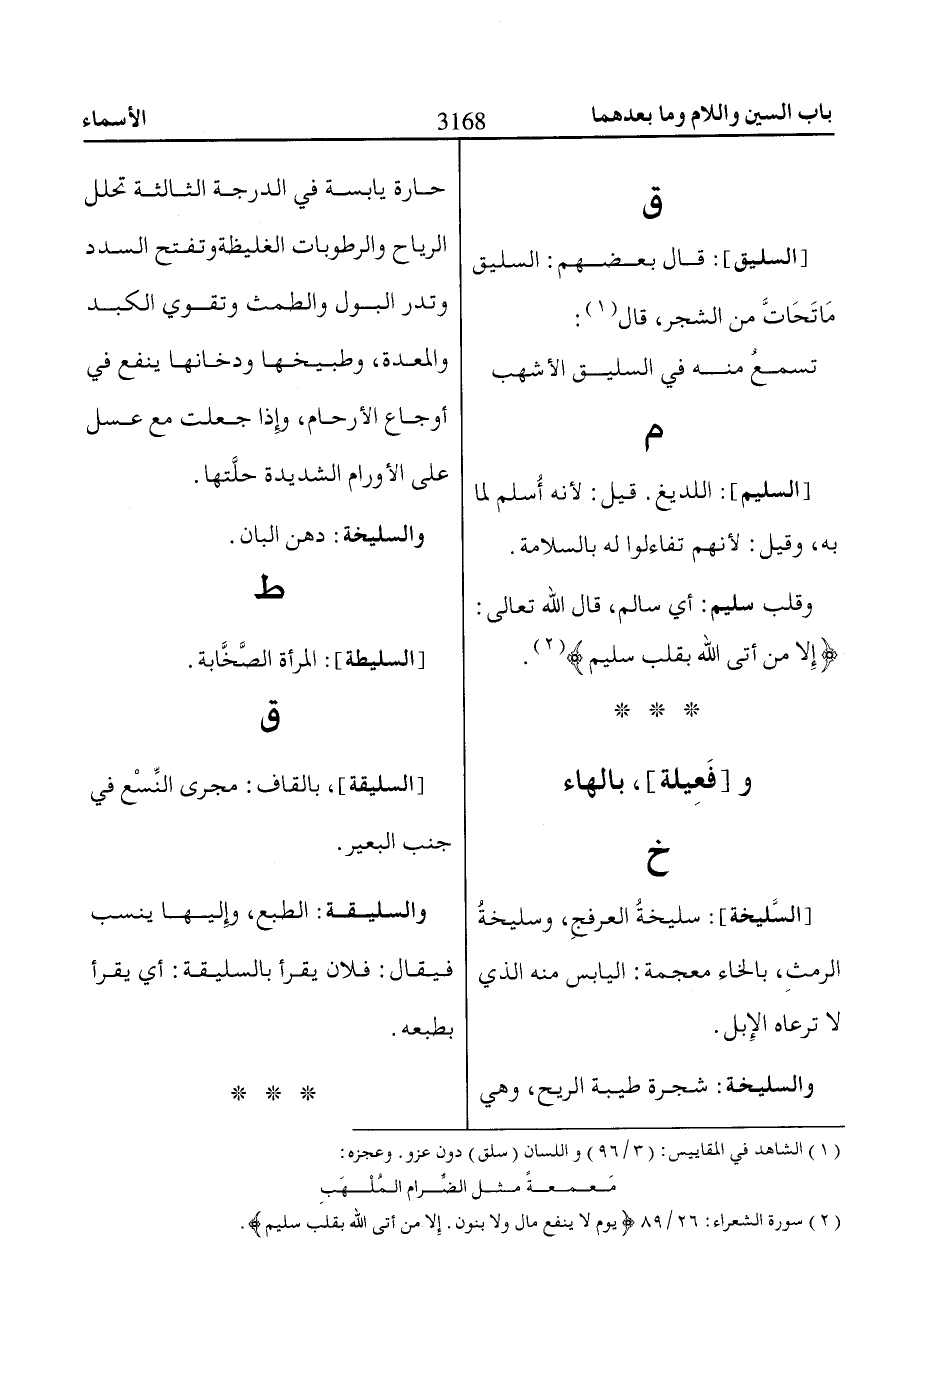 باب السين واللام وما بعدهما
3168
الأسماء
ق
[السليق]: قال بعضهم: السليق
مَاتَحَاتَّ من الشجر، قال(١):
تسمعُ منه في السليق الأشهب
م
[السليم]: اللديغ. قيل: لأنه أُسلم لما
به، وقيل: لأنهم تفاءلوا له بالسلامة.
وقلب سليم: أي سالم، قال الله تعالى:
﴿إلا من أتى الله بقلب سليم﴾(٢).
* * *
و [فَعِيلة]، بالهاء
خ
[السَّليخة]: سليخةُ العرفجِ، وسليخةُ
الرمثِ، بالخاء معجمة: اليابس منه الذي
لا ترعاه الإبل.
والسليخة: شجرة طيبة الريح، وهي
حارة يابسة في الدرجة الثالثة تحلل
الرياح والرطوبات الغليظة وتفتح السدد
وتدر البول والطمث وتقوي الكبد
والمعدة، وطبيخها ودخانها ينفع في
أوجاع الأرحام، وإذا جعلت مع عسل
على الأورام الشديدة حلَّتها.
والسليخة: دهن البان.
ط
[السليطة]: المرأة الصَّخَّابة.
ق
[السليقة]، بالقاف: مجرى النِّسْع في
جنب البعير.
والسليقة: الطبع، وإليها ينسب
فيقال: فلان يقرأ بالسليقة: أي يقرأ
بطبعه.
* * *
(١) الشاهد في المقاييس: (٩٦/٣) و اللسان (سلق) دون عزو. وعجزه:
مَعمعةً مثل الضِّرام المُلْهَبِ
(٢) سورة الشعراء: ٨٩/٢٦ ﴿يوم لا ينفع مال ولا بنون. إلا من أتى الله بقلب سليم﴾.